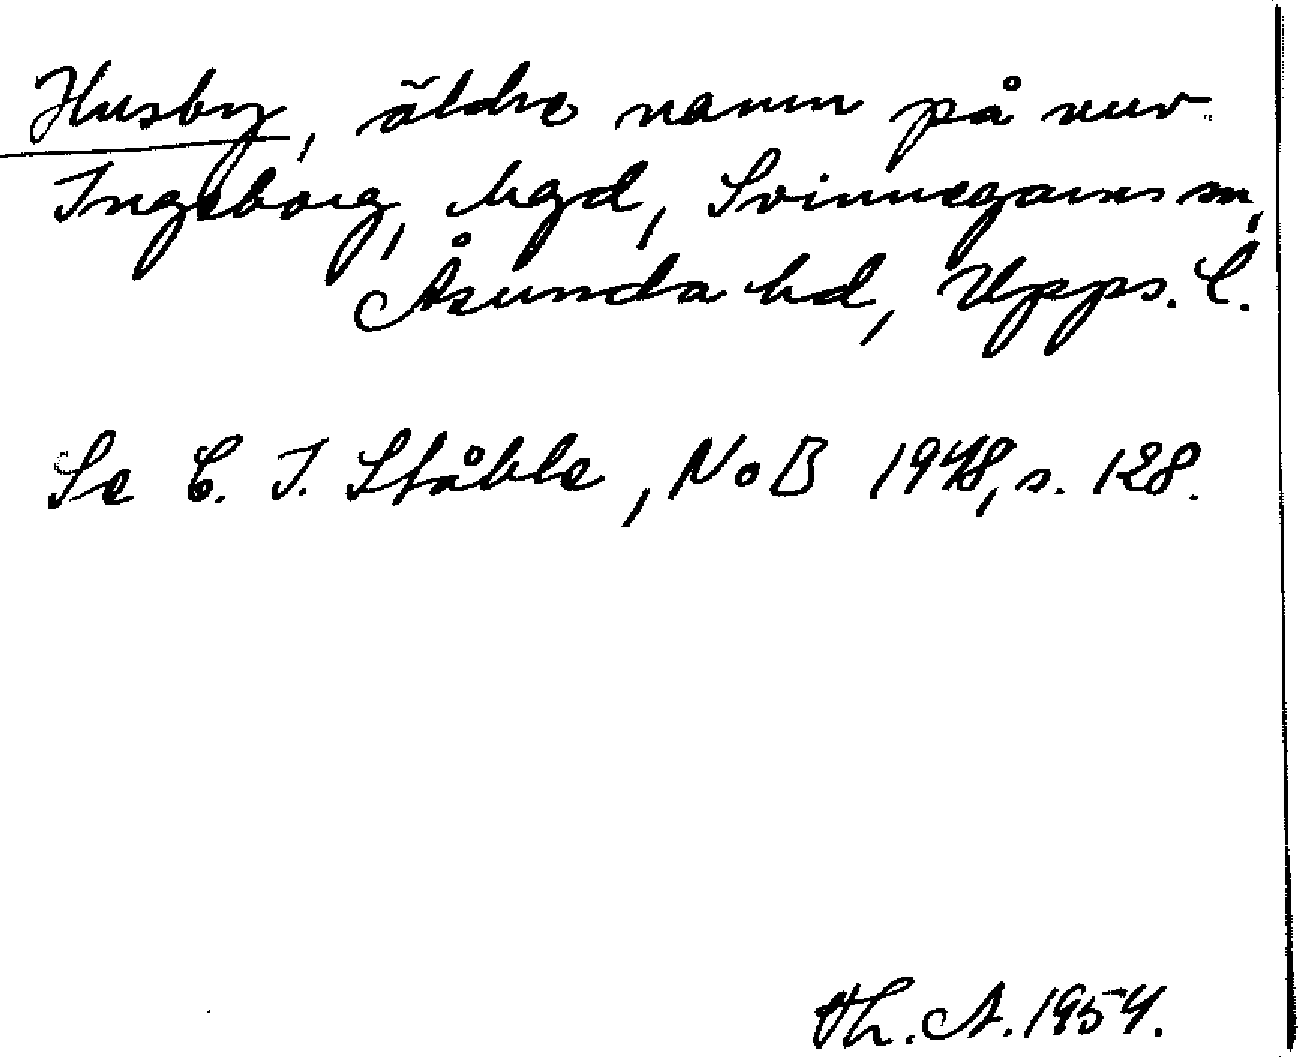 Husby, äldre namn på nuv.
Ingeborg, hgd, Svinnegarns sn,
Åsunda hd, Upps. l.
Se C. I. Ståhle, NoB 1948, s. 128.
Th. A. 1954.